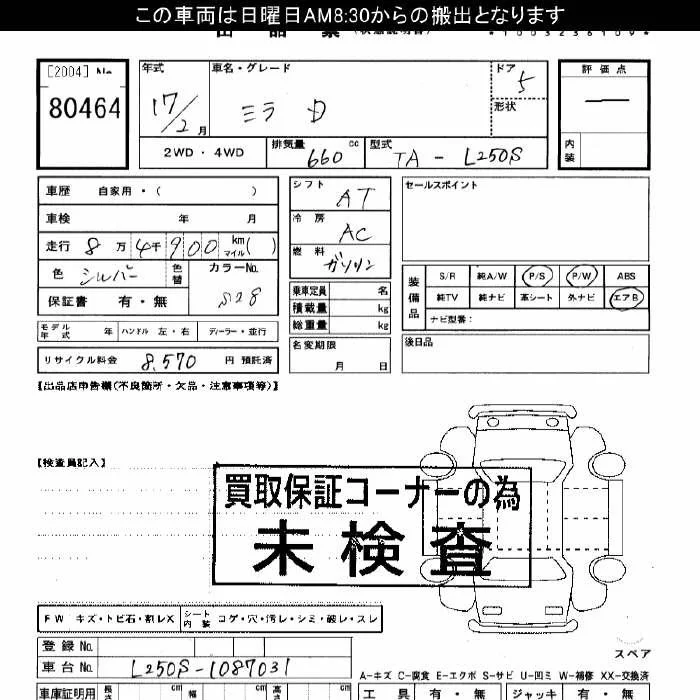 この車両は日曜日AM8:30からの搬出となります
出品票 (状態説明書)
[2004] No.
80464
年式 17/2月
車名・グレード ミラ D
ドア 5
形状
評価点 —
内装
2WD・4WD
排気量 660 cc
型式 TA-L250S
車歴 自家用・( )
車検 年 月
走行 8万4千900 km マイル( )
色 シルバー 色替
カラーNo. S28
保証書 有・無
モデル年式 年 ハンドル 左・右 ディーラー・並行
リサイクル料金 8,570 円 預託済
シフト AT
冷房 AC
燃料 ガソリン
乗車定員 名
積載量 kg
総重量 kg
名変期限 月 日
セールスポイント
装備品
S/R 純A/W P/S P/W ABS
純TV 純ナビ 革シート 外ナビ エアB
ナビ型番:
後日品
【出品店申告欄(不良箇所・欠品・注意事項等)】
【検査員記入】
買取保証コーナーの為
未検査
FW キズ・トビ石・割レX シート内装 コゲ・穴・汚レ・シミ・破レ・スレ
登録No.
車台No. L250S-1087031
スペア
A-キズ C-腐食 E-エクボ S-サビ U-凹ミ W-補修 XX-交換済
車庫証明用 長さ cm 幅 cm 高さ cm
工具 有・無 ジャッキ 有・無